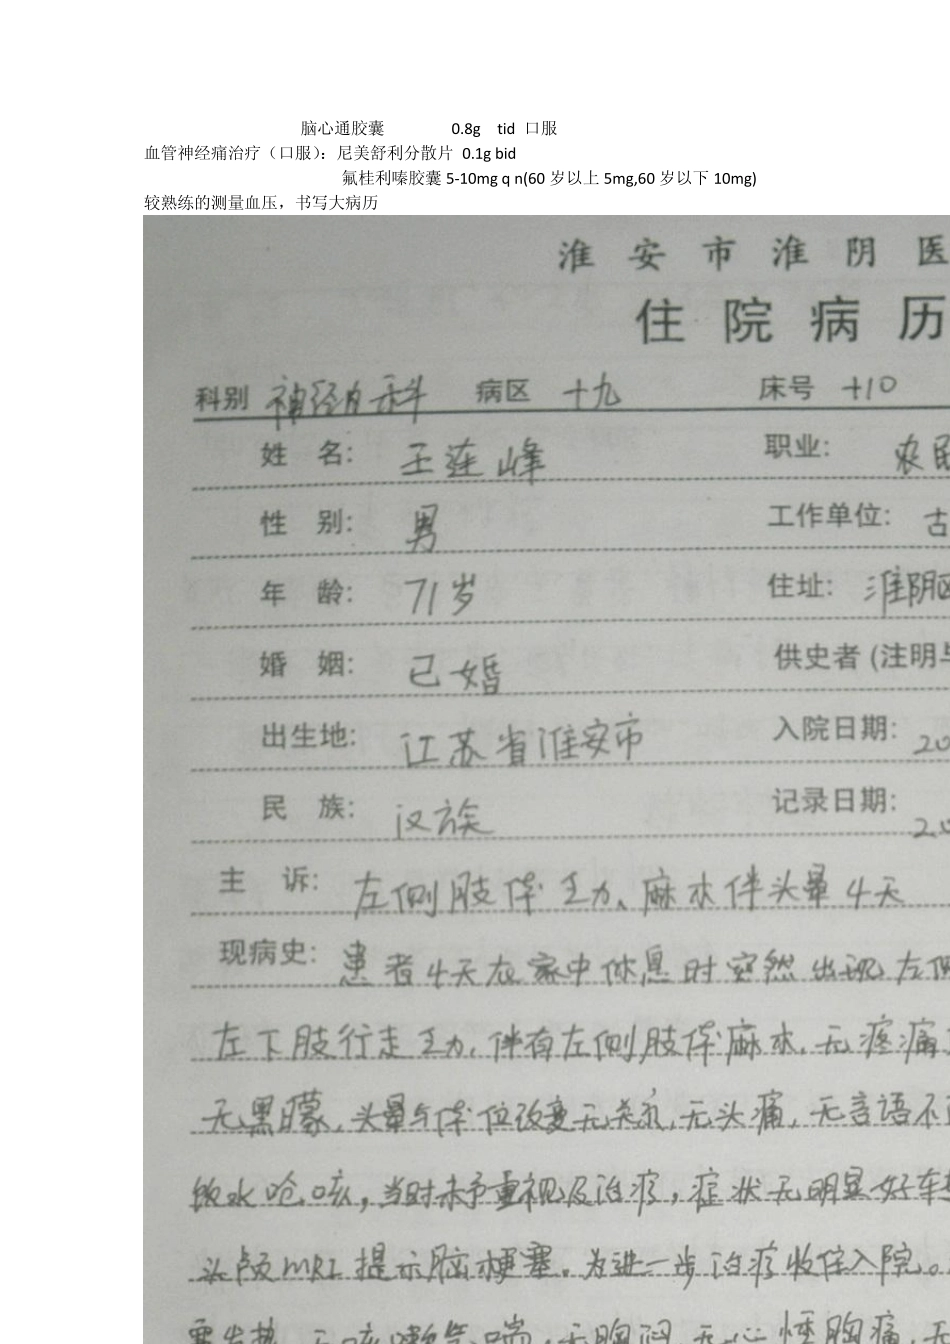 脑心通胶囊 0.8g tid 口服
血管神经痛治疗（口服）：尼美舒利分散片 0.1g bid
氟桂利嗪胶囊 5-10mg q n(60 岁以上 5mg,60 岁以下 10mg)
较熟练的测量血压，书写大病历
淮安市淮阴医
住院病历
科别 神经内科 病区 十九 床号 +10
姓 名： 王莲峰 职业： 农民
性 别： 男 工作单位： 古
年 龄： 71岁 住址： 淮阴区
婚 姻： 已婚 供史者 (注明与
出生地： 江苏省淮安市 入院日期： 20
民 族： 汉族 记录日期： 20
主 诉： 左侧肢体乏力、麻木伴头晕4天
现病史： 患者4天在家中休息时突然出现左侧
左下肢行走乏力，伴有左侧肢体麻木，无疼痛
无黑矇，头晕与体位改变无关系，无头痛，无言语不
饮水呛咳，当时未予重视及治疗，症状无明显好转
头颅MRI提示脑梗塞。为进一步治疗收住入院。
无咳嗽气喘，无胸闷，无心悸胸痛，